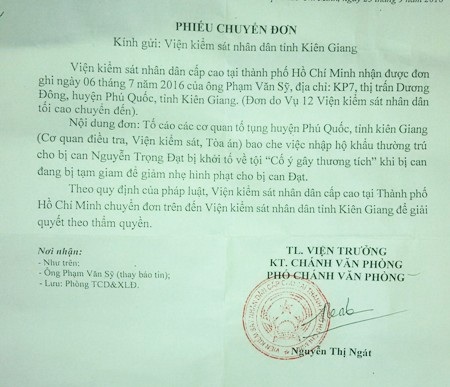 PHIẾU CHUYỂN ĐƠN
Kính gửi: Viện kiểm sát nhân dân tỉnh Kiên Giang
Viện kiểm sát nhân dân cấp cao tại thành phố Hồ Chí Minh nhận được đơn
ghi ngày 06 tháng 7 năm 2016 của ông Phạm Văn Sỹ, địa chỉ: KP7, thị trấn Dương
Đông, huyện Phú Quốc, tỉnh Kiên Giang. (Đơn do Vụ 12 Viện kiểm sát nhân dân
tối cao chuyển đến).
Nội dung đơn: Tố cáo các cơ quan tố tụng huyện Phú Quốc, tỉnh kiên Giang
(Cơ quan điều tra, Viện kiểm sát, Tòa án) bao che việc nhập hộ khẩu thường trú
cho bị can Nguyễn Trọng Đạt bị khởi tố về tội "Cố ý gây thương tích" khi bị can
đang bị tạm giam để giảm nhẹ hình phạt cho bị can Đạt.
Theo quy định của pháp luật, Viện kiểm sát nhân dân cấp cao tại Thành phố
Hồ Chí Minh chuyển đơn trên đến Viện kiểm sát nhân dân tỉnh Kiên Giang để giải
quyết theo thẩm quyền.
Nơi nhận:
- Như trên:
- Ông Phạm Văn Sỹ (thay báo tin);
- Lưu: Phòng TCD&XLĐ.
TL. VIỆN TRƯỞNG
KT. CHÁNH VĂN PHÒNG
PHÓ CHÁNH VĂN PHÒNG
Nguyễn Thị Ngát